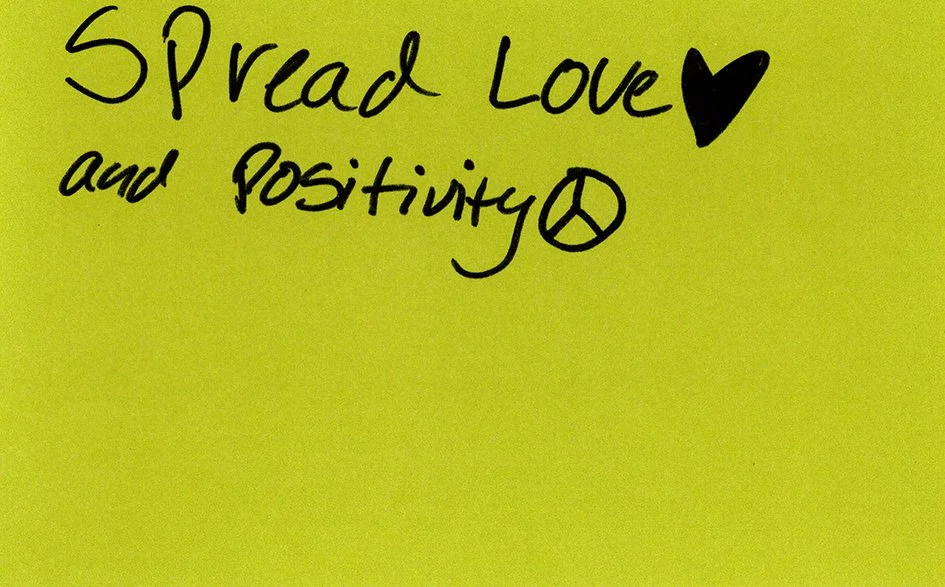 Spread Love ♥
and Positivity ☮